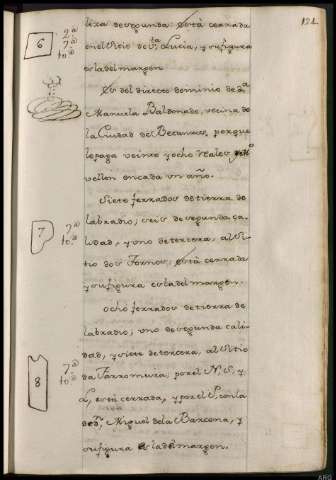 121
lixa de segunda: está cerrada
en el Sitio de Sta Lucia, y su figura
es la del margen
6
2a
7a
to a
Es del directo dominio de Da
Manuela Baldonado, vecina de
la Ciudad de Betanzos, porque
le paga veinte y ocho reales de
vellon en cada un año.
Siete ferrados de tierra de
labradio; seis de segunda ca-
lidad, y uno de tercera, al Si-
tio dos Fornos; está cerrada
y su figura es la del margen.
7
7a
to a
Ocho ferrados de tierra de
labradio; uno de segunda cali-
dad, y siete de tercera, al Sitio
da Torre mura; por el N. S. y
L. está cerrada, y por el P. con la
de Dn Miguel de la Barcena, y
su figura es la del margen.
8
7a
to a